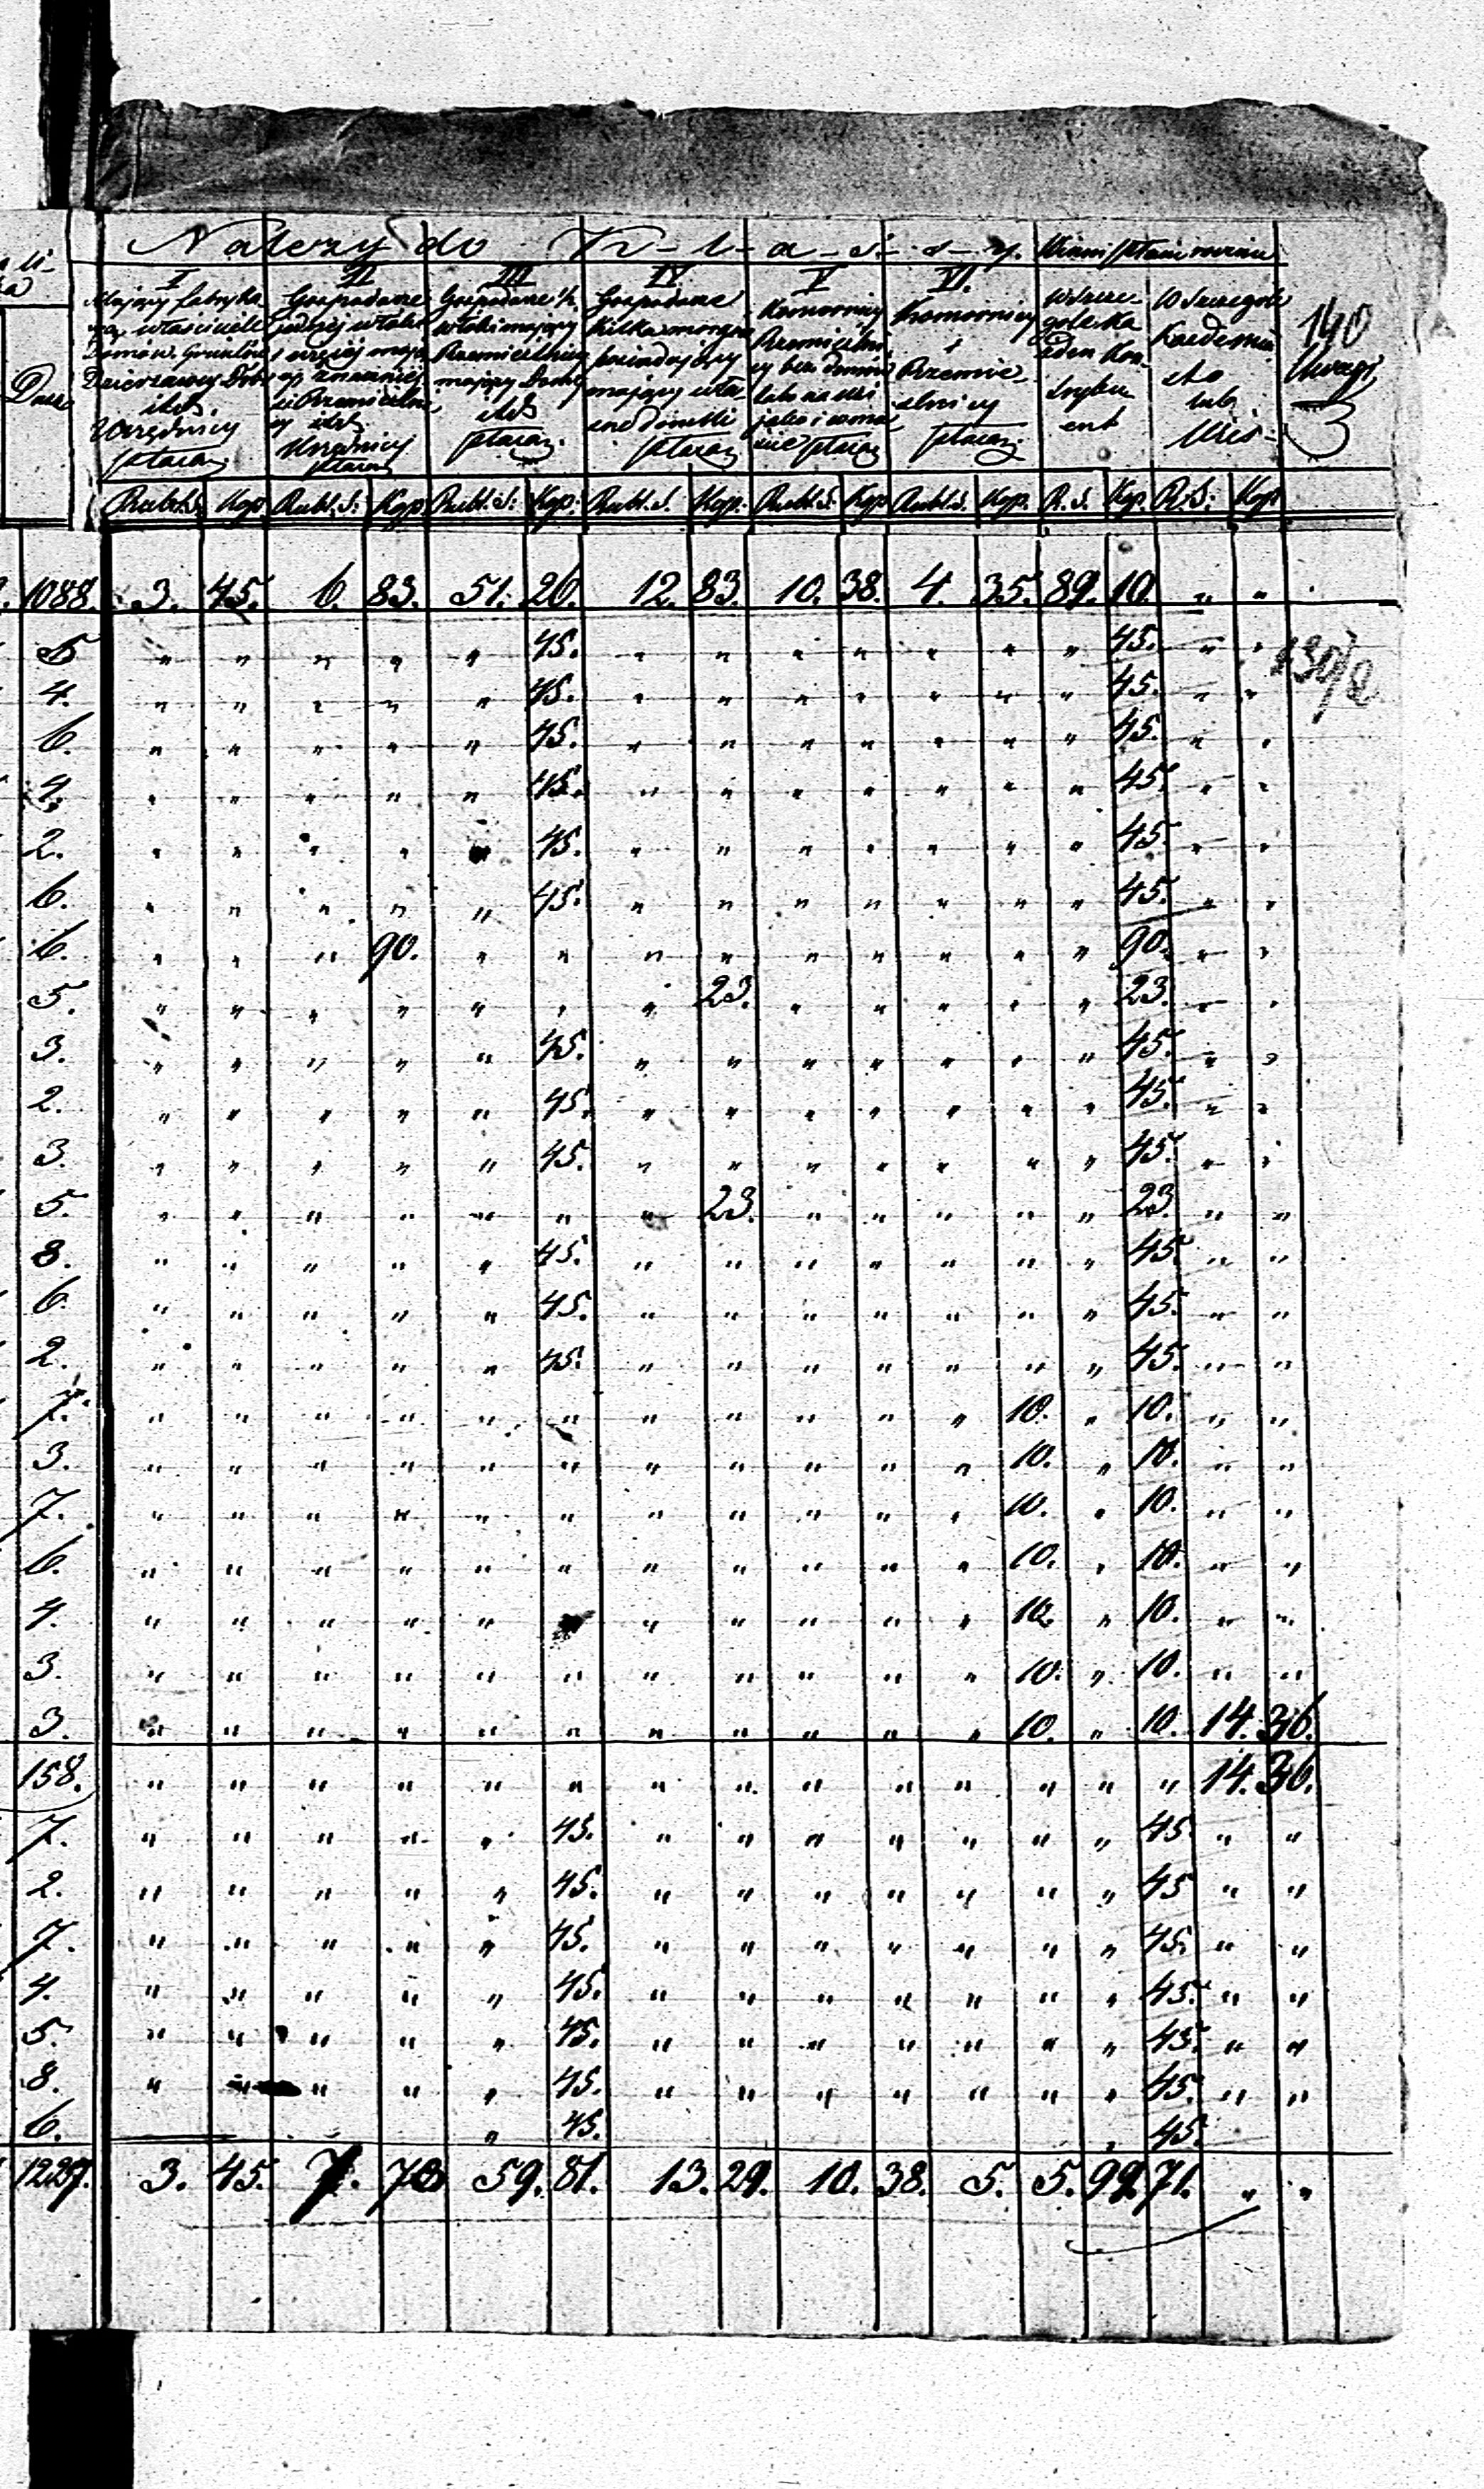 Należy do K-l-a-s-s-y. Winni płacić rocznie
I II III IV V VI.
140
Uwagi
Dusze
Mający fabryka
właściciele
Domów Gruntów
Dzierżawcy Dóbr
itd.
Urzędnicy
płacą
Gospodarze
jednej włóki
i więcej mają
itd.
Urzędnicy
płacą
Gospodarze ½
włóki mający
Rzemieślnicy
mający Domy
itd
płacą.
Gospodarze
kilka morgów
posiadający
mający
domki
płacą
Komornicy
Rzemieślni
cy bez domów
jako i
płacą
Komornicy
i
Rzemie-
ślnicy
płacą
W szcze
gole ka
żden Kon
trybu
ent
W szczegole
każdemia
sto
lub
Wieś
Rubl. S. Kop Rubl. S. Kop Rubl. S. Kop. Rubl. S. Kop. Rubl. S. Kop Rubl. S. Kop. R. S. Kop. R. S. Kop
1088. 3. 45. 6. 83. 51. 26. 12. 83. 10. 38. 4. 35. 89. 10. " "
5 " " " " " 45. " " " " " " " 45. " "
4. " " " " " 45. " " " " " " " 45. " "
6. " " " " " 45. " " " " " " " 45. " "
4. " " " " " 45. " " " " " " " 45. " "
2. " " " " " 45. " " " " " " " 45. " "
6. " " " " " 45. " " " " " " " 45. " "
6. " " " 90. " " " " " " " " " 90. " "
5. " " " " " " " 23. " " " " " 23. " "
3. " " " " " 45. " " " " " " " 45. " "
2. " " " " " 45. " " " " " " " 45. " "
3. " " " " " 45. " " " " " " " 45. " "
5. " " " " " " " 23. " " " " " 23. " "
8. " " " " " 45. " " " " " " " 45. " "
6. " " " " " 45. " " " " " " " 45. " "
2. " " " " " 45. " " " " " " " 45. " "
7. " " " " " " " " " " " 10. " 10. " "
3. " " " " " " " " " " " 10. " 10. " "
7. " " " " " " " " " " " 10. " 10. " "
6. " " " " " " " " " " " 10. " 10. " "
4. " " " " " " " " " " 10. " 10. " "
3. " " " " " " " " " " " 10. " 10. " "
3. " " " " " " " " " " " 10. " 10. 14. 36.
158. " " " " " " " " " " " " " " 14. 36.
7. " " " " " 45. " " " " " " " 45 " "
2. " " " " " 45. " " " " " " " 45 " "
7. " " " " " 45. " " " " " " " 45. " "
4. " " " " " 45. " " " " " " " 45. " "
5. " " " " " 45. " " " " " " " 45. " "
8. " " " " " 45. " " " " " " " 45. " "
6. " 45. " 45.
1227. 3. 45. 7. 73 59. 81. 13. 29. 10. 38. 5. 5. 99. 71. " "